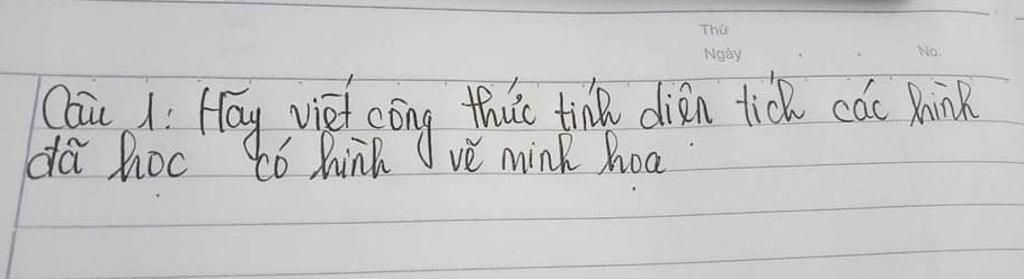 Thứ
Ngày . . No.
Câu 1: Hãy viết công thức tính diện tích các hình
đã học có hình vẽ minh họa.